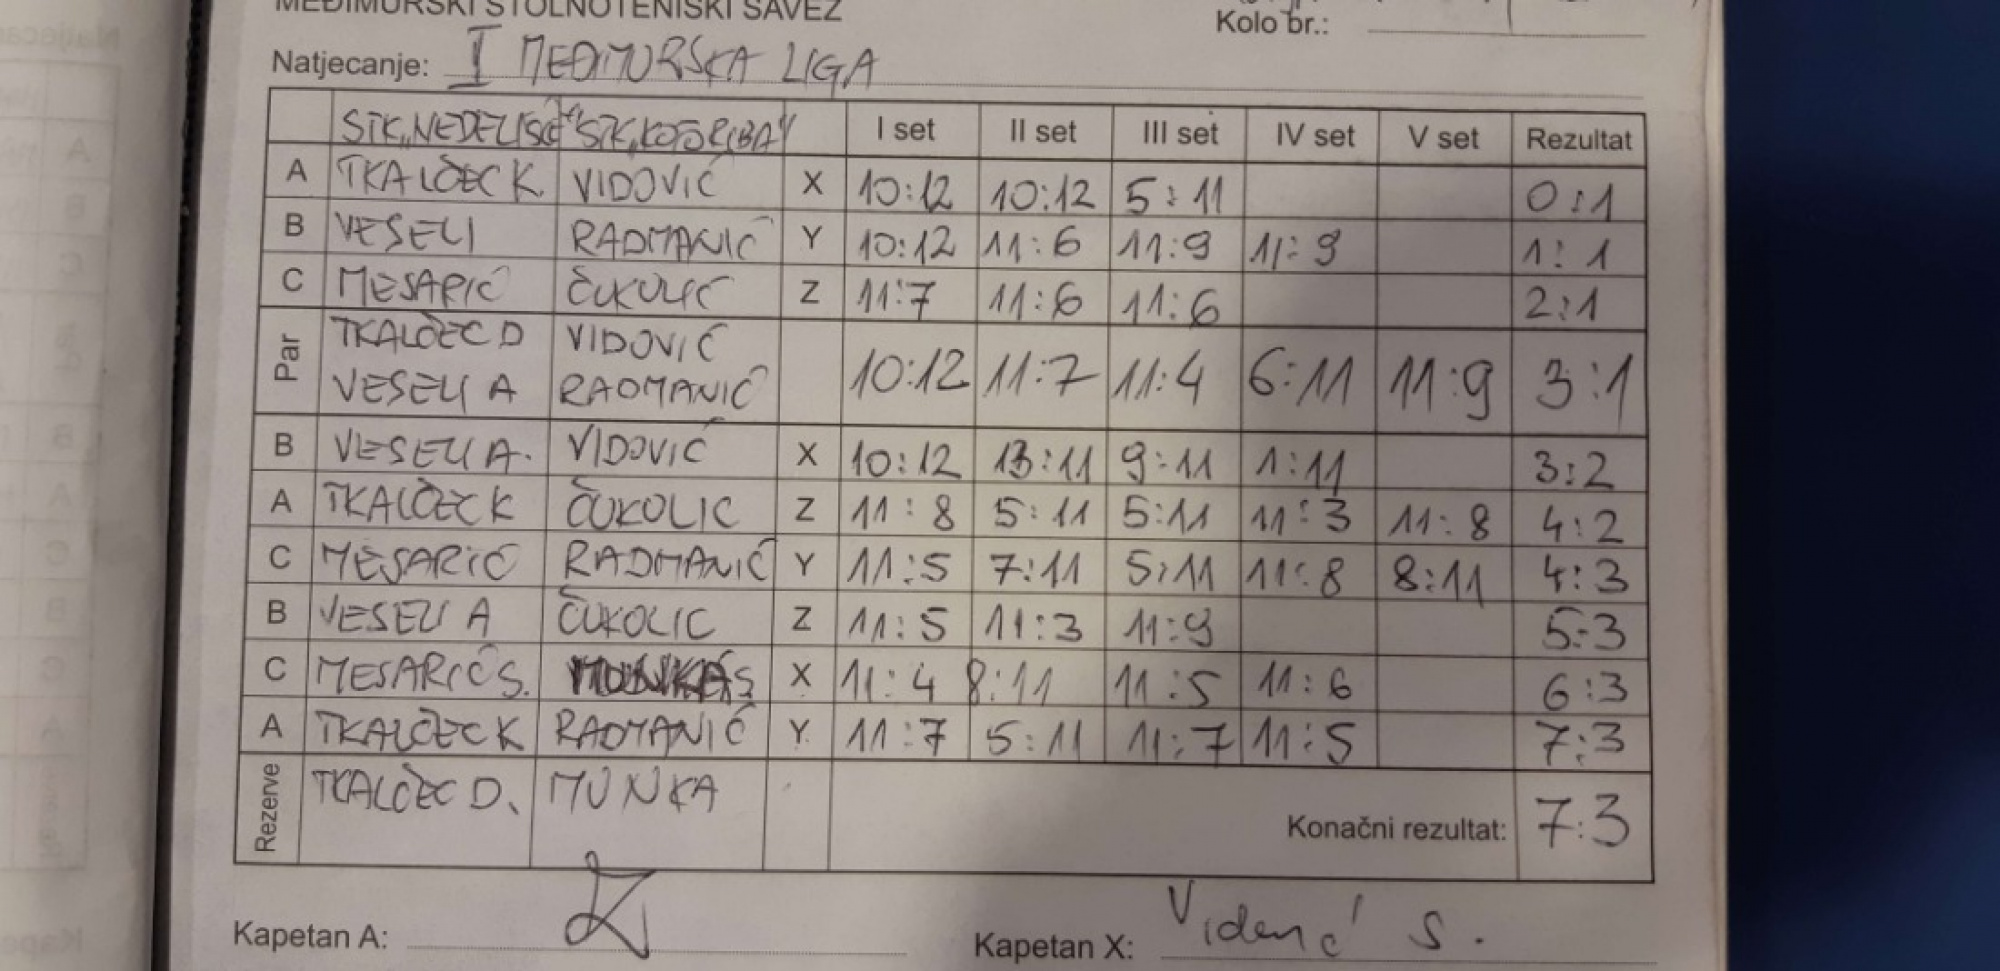 MEĐIMURSKI STOLNOTENISKI SAVEZ
Kolo br.:
Natjecanje: I MEĐIMURSKA LIGA
STK„NEDELIŠĆE" STK„KOTORIBA" I set II set III set IV set V set Rezultat
A TKALČEC K. VIDOVIĆ X 10:12 10:12 5:11 0:1
B VESELI RADMANIĆ Y 10:12 11:6 11:9 11:9 1:1
C MESARIĆ ČUKULIĆ Z 11:7 11:6 11:6 2:1
Par TKALČEC D VIDOVIĆ
VESELI A RADMANIĆ 10:12 11:7 11:4 6:11 11:9 3:1
B VESELI A. VIDOVIĆ X 10:12 13:11 9:11 1:11 3:2
A TKALČEC K ČUKOLIC Z 11:8 5:11 5:11 11:3 11:8 4:2
C MESARIĆ RADMANIĆ Y 11:5 7:11 5:11 11:8 8:11 4:3
B VESELI A ČUKOLIC Z 11:5 11:3 11:9 5:3
C MESARIĆ S. X 11:4 8:11 11:5 11:6 6:3
A TKALČEC K RADMANIĆ Y 11:7 5:11 11:7 11:5 7:3
Rezerve TKALČEC D. MUNKA
Konačni rezultat: 7:3
Kapetan A: Kapetan X: S.